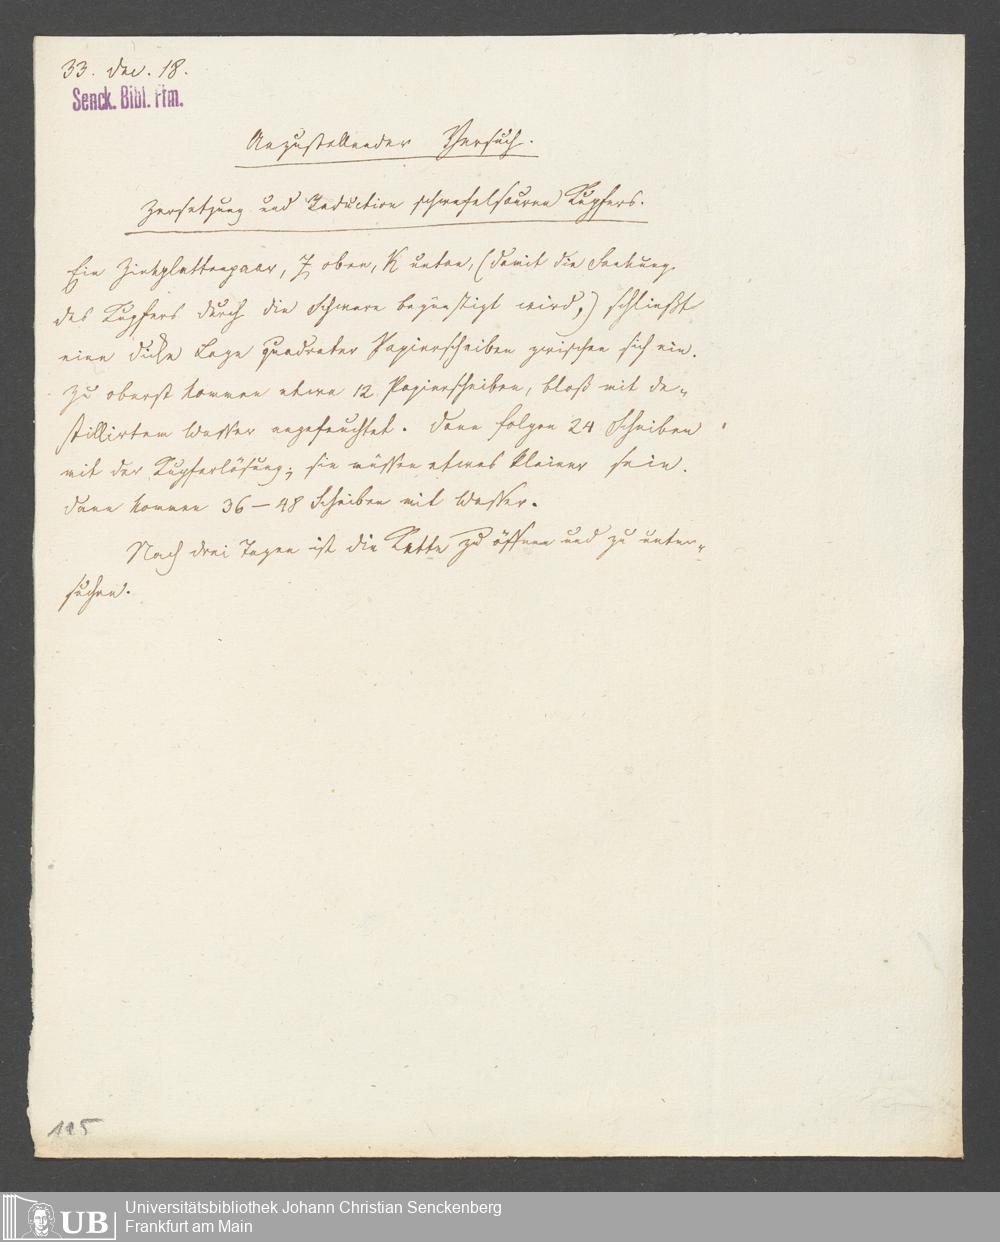 33. Dec. 18.
Senck. Bibl. Ffm.
Anzustellender Versuch.
Zersetzung und Reduction schwefelsauren Kupfers.
Ein Zinkplattenpaar, Z oben, K unten, (damit die Senkung
des Kupfers durch die Schwere begünstigt wird,) schließt
eine dicke Lage quadrater Papierscheiben zwischen sich ein.
Zu oberst kommen etwa 12 Papierscheiben, bloß mit de-
stillirtem Wasser angefeuchtet. Dann folgen 24 Scheiben
mit der Kupferlösung; sie müssen etwas kleiner sein.
Dann kommen 36-48 Scheiben mit Wasser.
Nach drei Tagen ist die Kette zu öffnen und zu unter-
suchen.
UB
Universitätsbibliothek Johann Christian Senckenberg
Frankfurt am Main